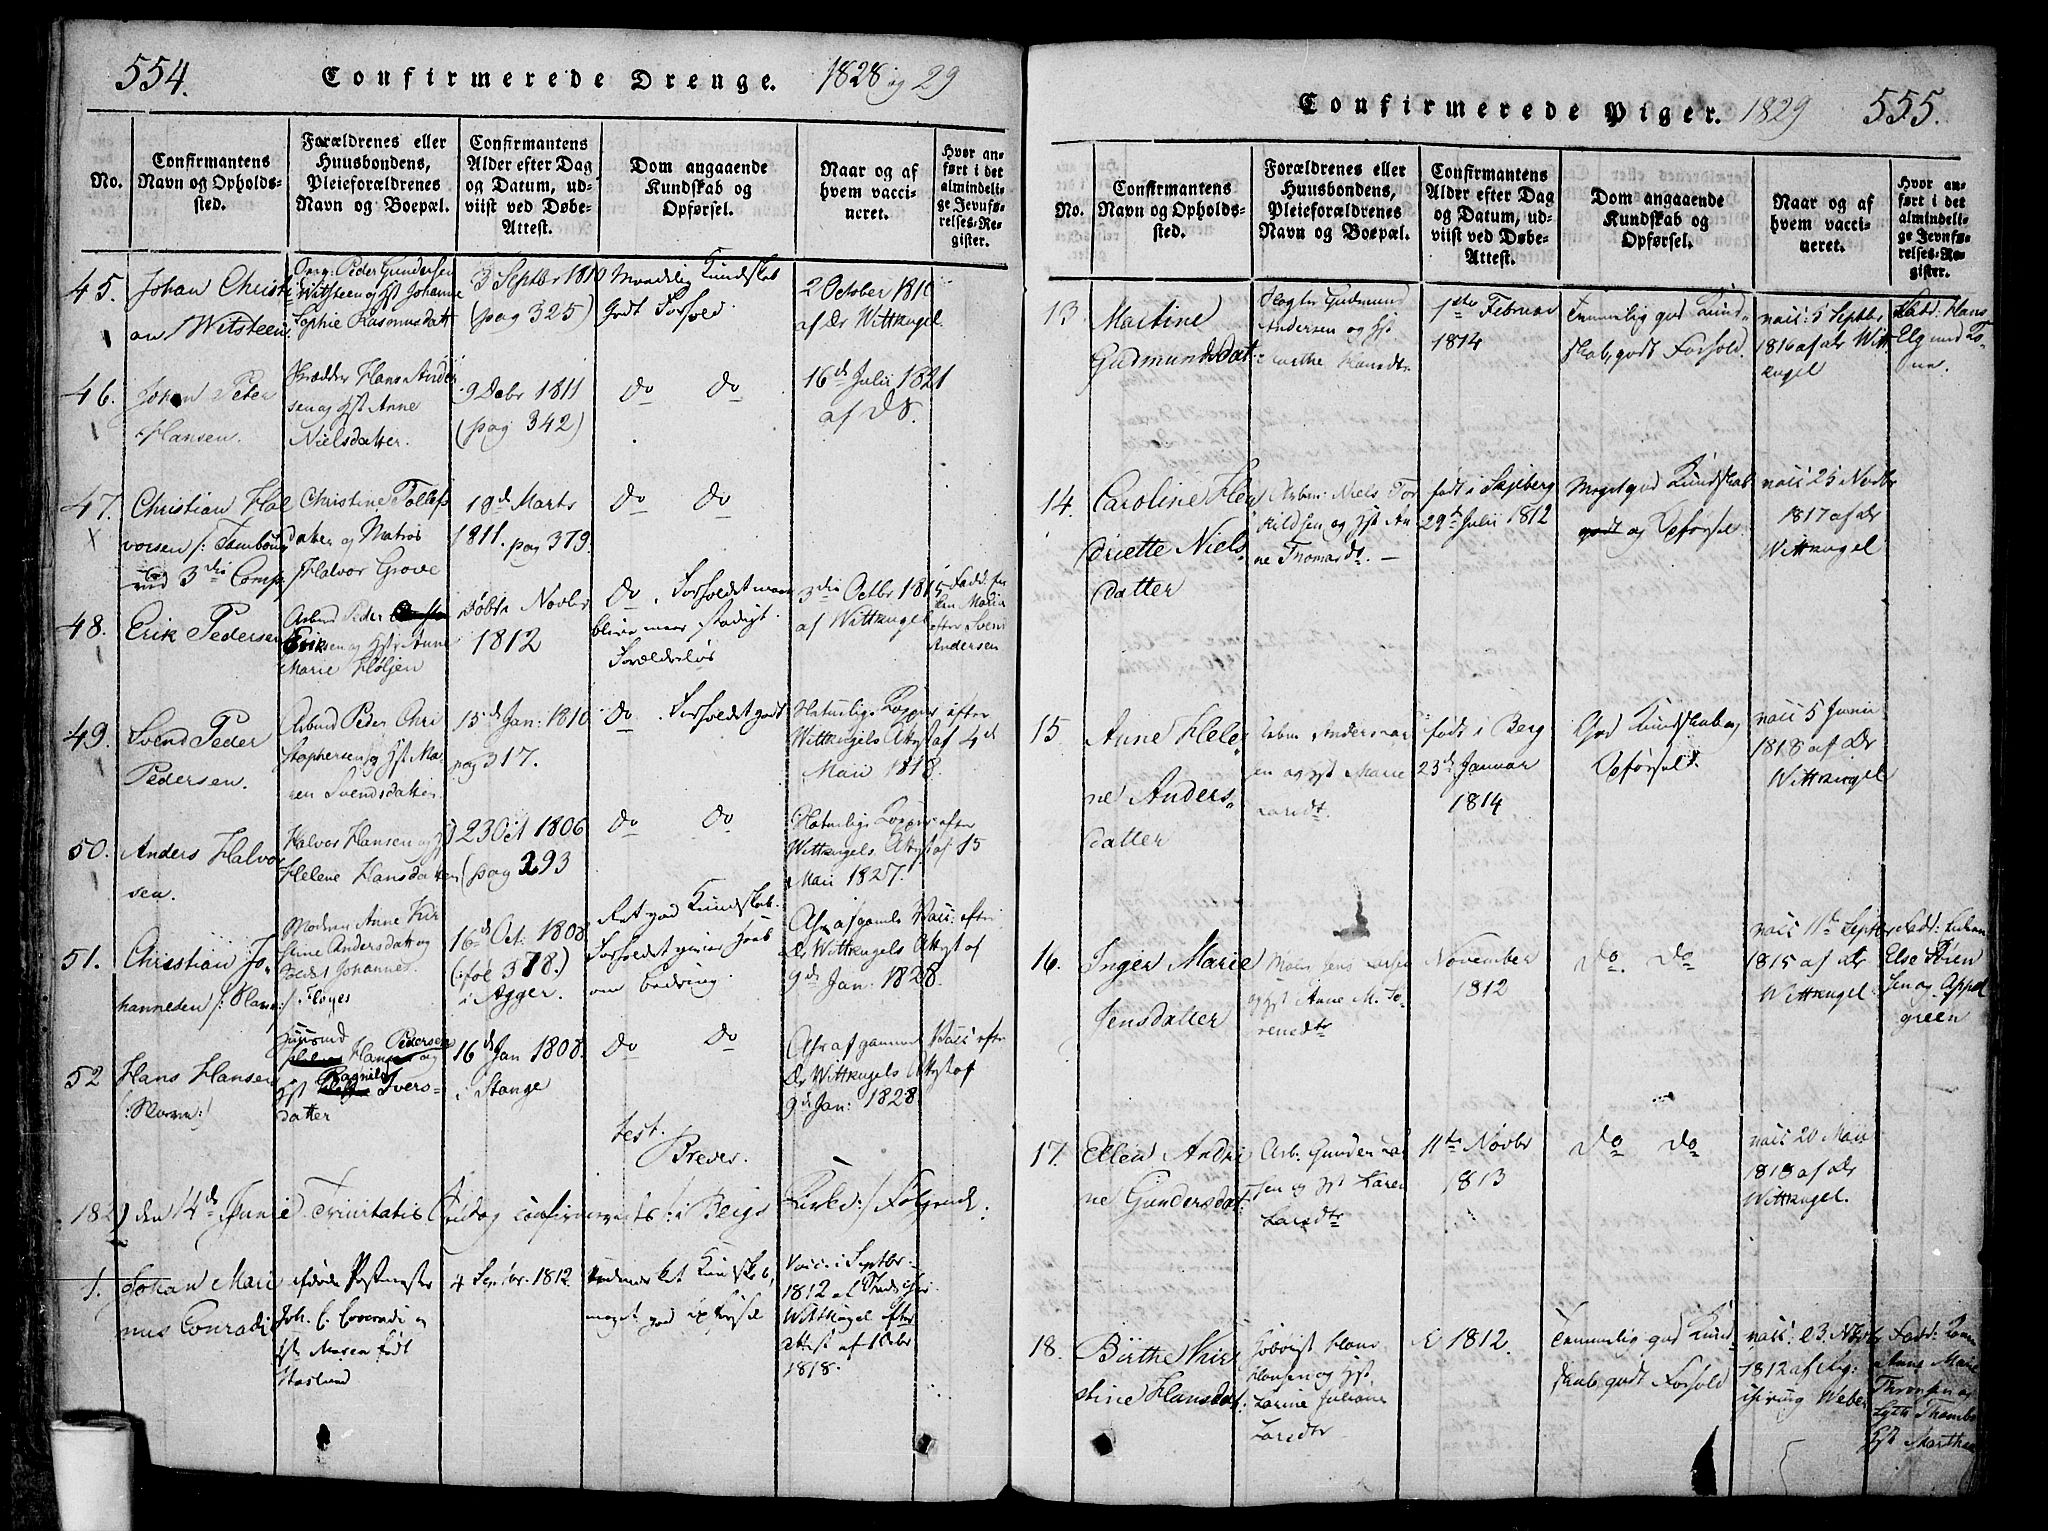 554. Confirmerede Drenge. 1828 og 29
No.
Confirmantens
Navn og Opholds-
sted.
Forældrenes eller
Huusbondens,
Pleieforældrenes
Navn og Boepæl.
Confirmantens
Alder efter Dag
og Datum, ud-
viist ved Døbe-
Attest.
Dom angaaende
Kundskab og
Opførsel.
Naar og af
hvem vacci-
neret.
Hvor an-
ført i det
almindeli-
ge Jevnfø-
relses-Re-
gister.
45.
Johan Christi
an Witsteen
Peder Gundersen
Witsteen og Hst Johanne
Sophie Rasmusdatt
3 Septbr 1810
(pag 325)
Maadelig Kundskab
godt Forhold
2 October 1810
af Dr Wittkugel.
46.
Johan Peter
Hansen.
Skrædder Hans Ander
sen og Hst Anne
Nielsdatter.
9 Debr 1811
(pag 342)
Do Do
16d Julii 1821
af DS.
47.
Christian Hal
vorsen /: Tambour
ved 3die Comp.
Christine Tollefs
datter og Matros
Halvor Grove
19d Marts
1811. pag 379.
Do Do
48.
Erik Pedersen
Arbmd Peder
Eriksen og Hst Anne
Marie Hløljen
Døbt Novbr
1812
Do. Forholdet maa
blive mere stadigt.
Forældreløs
3die Octbr 1815
af Wittkugel
Fadd:
Maria
efter Svend
Andersen
49.
Svend Peder
Pedersen.
Arbmd Peder Chri
stophersen og Hst Ma
ren Svendsdatter
15d Jan: 1810
pag 317.
Do. Forholdet godt
Naturlige Kopper efter
Wittkugels Attest af 4d
Maii 1818.
50.
Anders Halvor
sen.
Halvor Hansen og H
Helene Hansdatter
23 Oct 1806
(pag 293
Do Do
Naturlige Kopper efter
Wittkugels Attest af 15
Maii 1827.
51.
Christian Jo-
hannesen /: Slave:/
Moderen Anne Kir
stine Andersdatt og
Johannes
Fløyes
16d Oct. 1808
(: fol 378.)
i Agger.
Ret god Kundskab.
Forholdet giver Haab
om bedring.
Ahr af gamle Vacc: efter
Dr Wittkugels Attest af
9d Jan: 1828.
52
Hans Hansen
/: Slave:/
Huusmd
Hans Pedersen og
Hst Ragnild Ivers-
datter
16d Jan 1808.
i Stange
Do Do
Ahr af gammel Vacc: efter
Dr Wittkugels Attest af
9d Jan: 1828
test.
Brever.
1829 den 14d Junie Trinitatis Søndag confirmeredes /: i Bergs Kirke :/ Følgende:
1.
Johan Mari
nus Conradi
afdøde Postmester
Joh. C. Conradi og
Hst Maren født
Haslund
4 Septbr. 1812.
Udmærket Kundskab,
meget god Opførsel
Vacc. i Septbr.
1812 af
Wittkugel efter
attest af 1 Octbr
1818.
Confirmerede Piger. 1829 555.
No.
Confirmantens
Navn og Opholds-
sted.
Forældrenes eller
Huusbondens,
Pleieforældrenes
Navn og Boepæl.
Confirmantens
Alder efter Dag
og Datum, ud-
viist ved Døbe-
Attest.
Dom angaaende
Kundskab og
Opførsel.
Naar og af
hvem vacci-
neret.
Hvor an-
ført i det
almindeli-
ge Jevnfø-
relses-Re-
gister.
13.
Martine
Gudmundsdat:
Gudmund
Andersen og Hst
Marthe Hansdtr
1ste Februar
1814
Temmelig god Kund-
skab, godt Forhold.
vacc: 5 Septbr
1816 af Dr Witt
kugel
Fad: Hans
Elg
14.
Caroline Hen
driette Niels-
datter
Arbm: Niels Tor
kildsen og Hst An
ne Thomasdtr. —
født i Skjeberg
29d Julii 1812
Meget god Kundskab
godt og Opførsel
vacc 25 Novbr
1817 af Dr
Wittkugel
15.
Anne Hele
ne Anders-
datter
Arbm. Anders Lar
sen og Hst Marie
Larsdtr.
født i Berg
23d Januar
1814
God Kundskab og
Opførsel.
vacc 5 Junii
1818 af Dr
Wittkugel
16.
Inger Marie
Jensdatter
Jens Larsen
og Hst Anne M. Sø
rensdtr
November
1812
Do. Do
vacc 11te Septbr
1815 af Dr
Wittkugel
Fadd:
Else Søren
sen og Appel
green
17.
Ellen Andri
ne Gundersdat:
Arb: Gunder Lar
sen og Hst Karen
Larsdtr
11te Novbr
1813
Do Do
vacc 20 Maii
1818 af Dr
Wittkugel.
18.
Birthe Kir
stine Hansdat:
Hans
Hansen og Hst
Karine Juliane
Larsdtr
1812.
Temmelig god Kund
skab, godt Forhold
vacc: 23. Novbr
1812 af Reg:
chirurg Weber
Fadd:
Anne Marie
Thronsen og
Hst Marthe